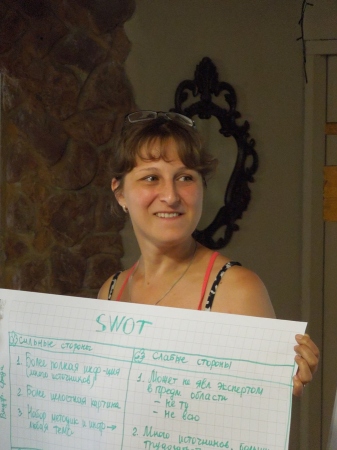 SWOT
Сильные стороны
1. Более полная инф-ция
(много источников)
2. Более целостная картина
3. Набор методик и инф →
новая тема.
Слабые стороны
1. Может не явл. экспертом
в предм. области
- не ту
- не всю
2. Много источников,